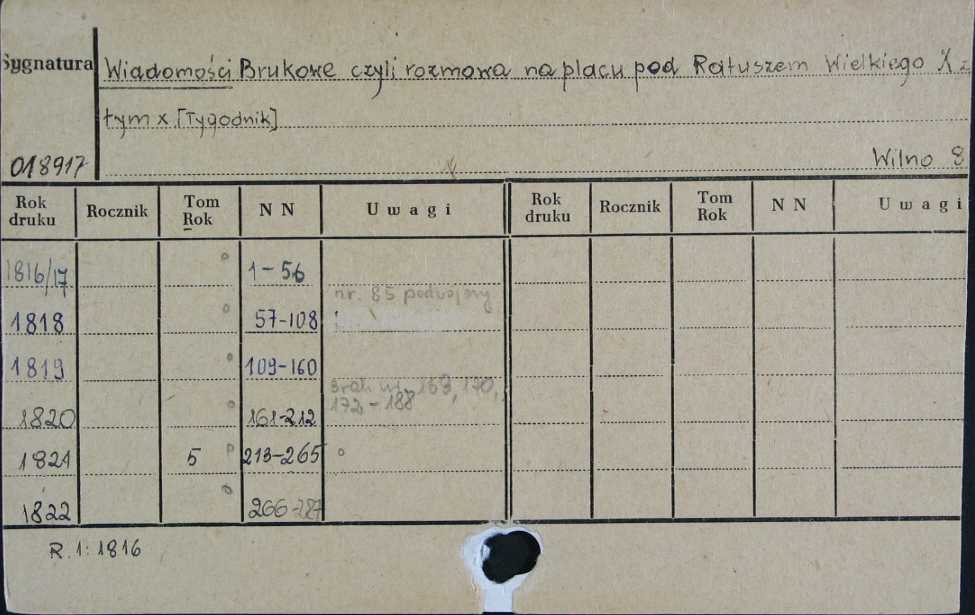 Sygnatura
Wiadomości Brukowe czyli rozmowa na placu pod Ratuszem Wielkiego X z
tym x [Tygodnik]
018917
Wilno 8
Rok druku Rocznik Tom Rok N N Uwagi Rok druku Rocznik Tom Rok N N Uwagi
1816/17 1-56
nr. 85 podwójny
1818 57-108
1819 109-160
Brak nr. 163, 170,
172-188
1820 161-212
1821 5 213-265
1822 266-287
R. 1: 1816